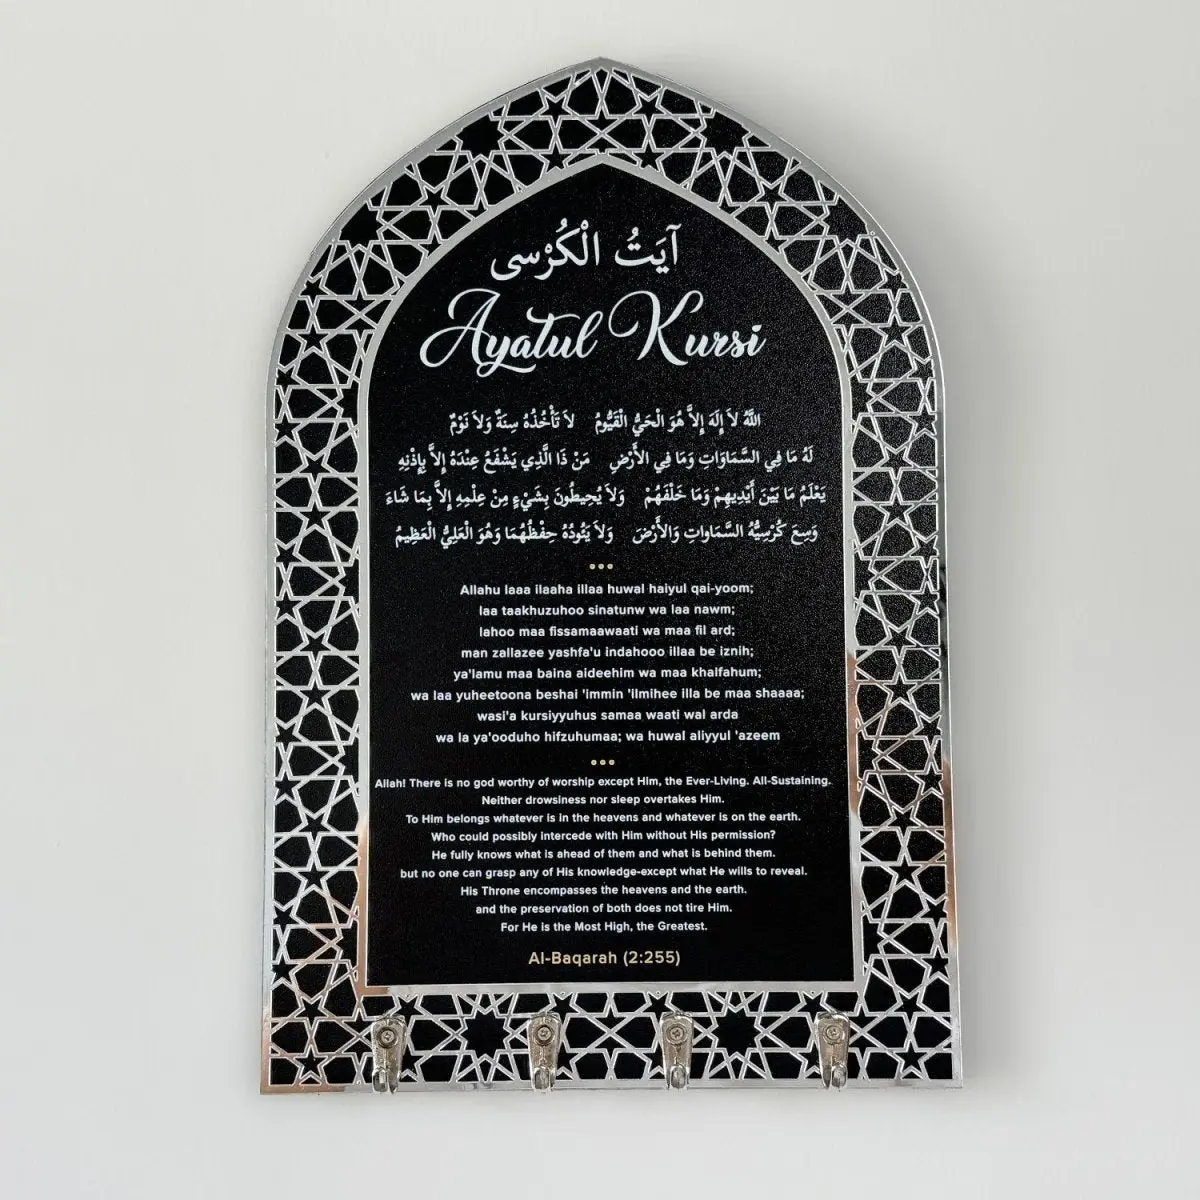 آيَتُ الْكُرْسى
Ayatul Kursi
اللَّهُ لاَ إِلَهَ إِلاَّ هُوَ الْحَيُّ الْقَيُّومُ لاَ تَأْخُذُهُ سِنَةٌ وَلاَ نَوْمٌ
لَهُ مَا فِي السَّمَاوَاتِ وَمَا فِي الأَرْضِ مَنْ ذَا الَّذِي يَشْفَعُ عِنْدَهُ إِلاَّ بِإِذْنِهِ
يَعْلَمُ مَا بَيْنَ أَيْدِيهِمْ وَمَا خَلْفَهُمْ وَلاَ يُحِيطُونَ بِشَيْءٍ مِنْ عِلْمِهِ إِلاَّ بِمَا شَاءَ
وَسِعَ كُرْسِيُّهُ السَّمَاواتِ وَالأَرْضَ وَلاَ يَئُودُهُ حِفْظُهُمَا وَهُوَ الْعَلِيُّ الْعَظِيمُ
Allahu laaa ilaaha illaa huwal haiyul qai-yoom;
laa taakhuzuhoo sinatunw wa laa nawm;
lahoo maa fissamaawaati wa maa fil ard;
man zallazee yashfa'u indahooo illaa be iznih;
ya'lamu maa baina aideehim wa maa khalfahum;
wa laa yuheetoona beshai 'immin 'ilmihee illa be maa shaaaa;
wasi'a kursiyyuhus samaa waati wal arda
wa la ya'ooduho hifzuhumaa; wa huwal aliyyul 'azeem
Allah! There is no god worthy of worship except Him, the Ever-Living. All-Sustaining.
Neither drowsiness nor sleep overtakes Him.
To Him belongs whatever is in the heavens and whatever is on the earth.
Who could possibly intercede with Him without His permission?
He fully knows what is ahead of them and what is behind them.
but no one can grasp any of His knowledge-except what He wills to reveal.
His Throne encompasses the heavens and the earth.
and the preservation of both does not tire Him.
For He is the Most High, the Greatest.
Al-Baqarah (2:255)